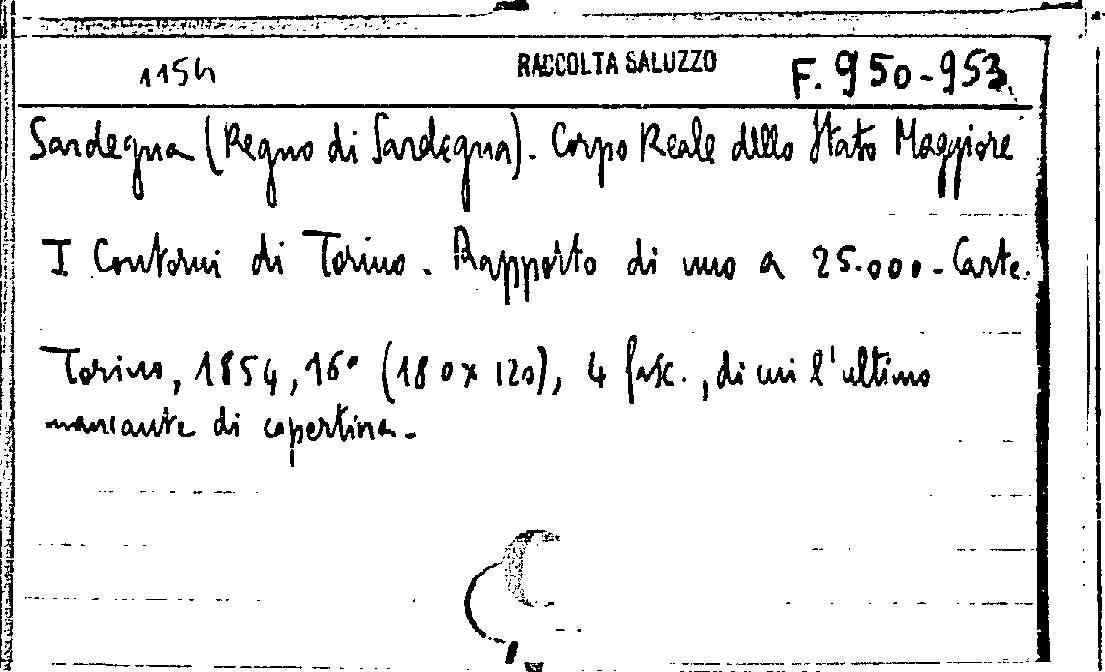 1154 RACCOLTA SALUZZO F. 950-953
Sardegna (Regno di Sardegna). Corpo Reale dello Stato Maggiore
I Contorni di Torino. Rapporto di uno a 25.000 - Carte.
Torino, 1854, 16° (180 x 120), 4 fasc., di cui l'ultimo
mancante di copertina.